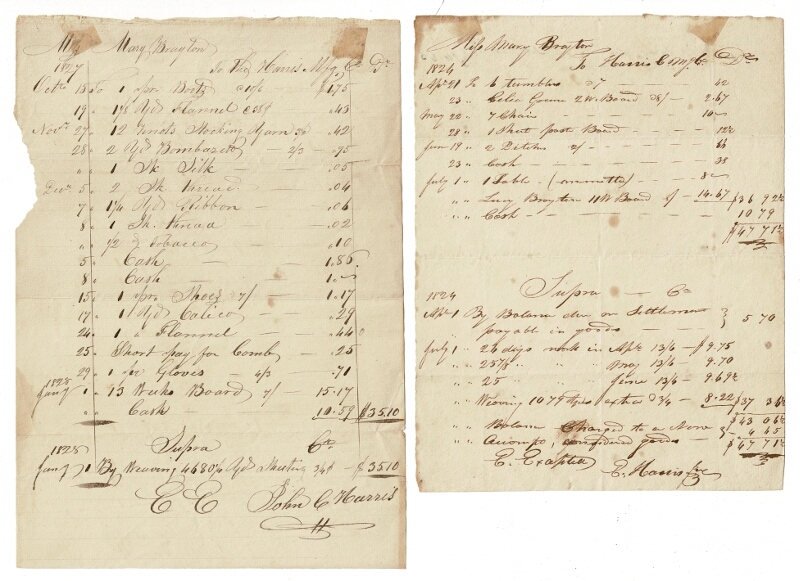 Mary Brayton
1827 To The Harris Mfg Co Dr
Octr 13 To 1 pr Boots $1.75
19 " 1 1/2 Yd Flannel .43
Novr 27 " 12 Knots Stocking Yarn .42
28 " 2 Yd Bombazett 2/3 .75
" " 1 Sk Silk .05
Decr 5 " 2 Sk Thread .04
7 " 1 1/4 Yd Ribbon .06
8 " 1 Sk Thread .02
" " 1/2 Tobacco .10
5 " Cash 1.85
8 " Cash 1.
15 " 1 pr Shoes 7/ 1.17
17 " 1 Yd Calico .29
24 " 1 " Flannel .44
25 " Short pay for Comb .25
29 " 1 pr Gloves 4/3 .71
1828
Jany 1 " 13 Weeks Board 7/ 15.17
" " Cash 10.59 $35.10
1828 Supra Cr
Jany 1 By Weaving 4680 Yd Sheeting 3/4 $35.10
E E John C Harris
Miss Mary Brayton
1824 To Harris C Mfg Co Dr
Apl 21 To 6 tumblers 42
23 " Celia Greene 2 W Board 8/ 2.67
May 22 " 7 Chair
28 " 1 Sheet paste Board 12 1/2
June 19 " 2 Pitchers
23 " Cash
July 1 " 1 Table
" " Lucy Brayton 11 W Board 8/ 14.67 $36 92
" " Cash 10 79
$47 71
1824 Supra Cr
Apl 1 By Balance due on Settlement
payable in goods 5 70
July 1 " 26 days work in Apl 13/6 $9.75
" " 25 7/8 " " May 13/6 9.70
" " 25 " " June 13/6 9.69
" " Weaving 1079 Yds extra 3/4 8.22 $37 36
$43 06
" " Balance Charged to a New
Accompt, considered goods 4 65
$47 71
E. Excepted E. Harris